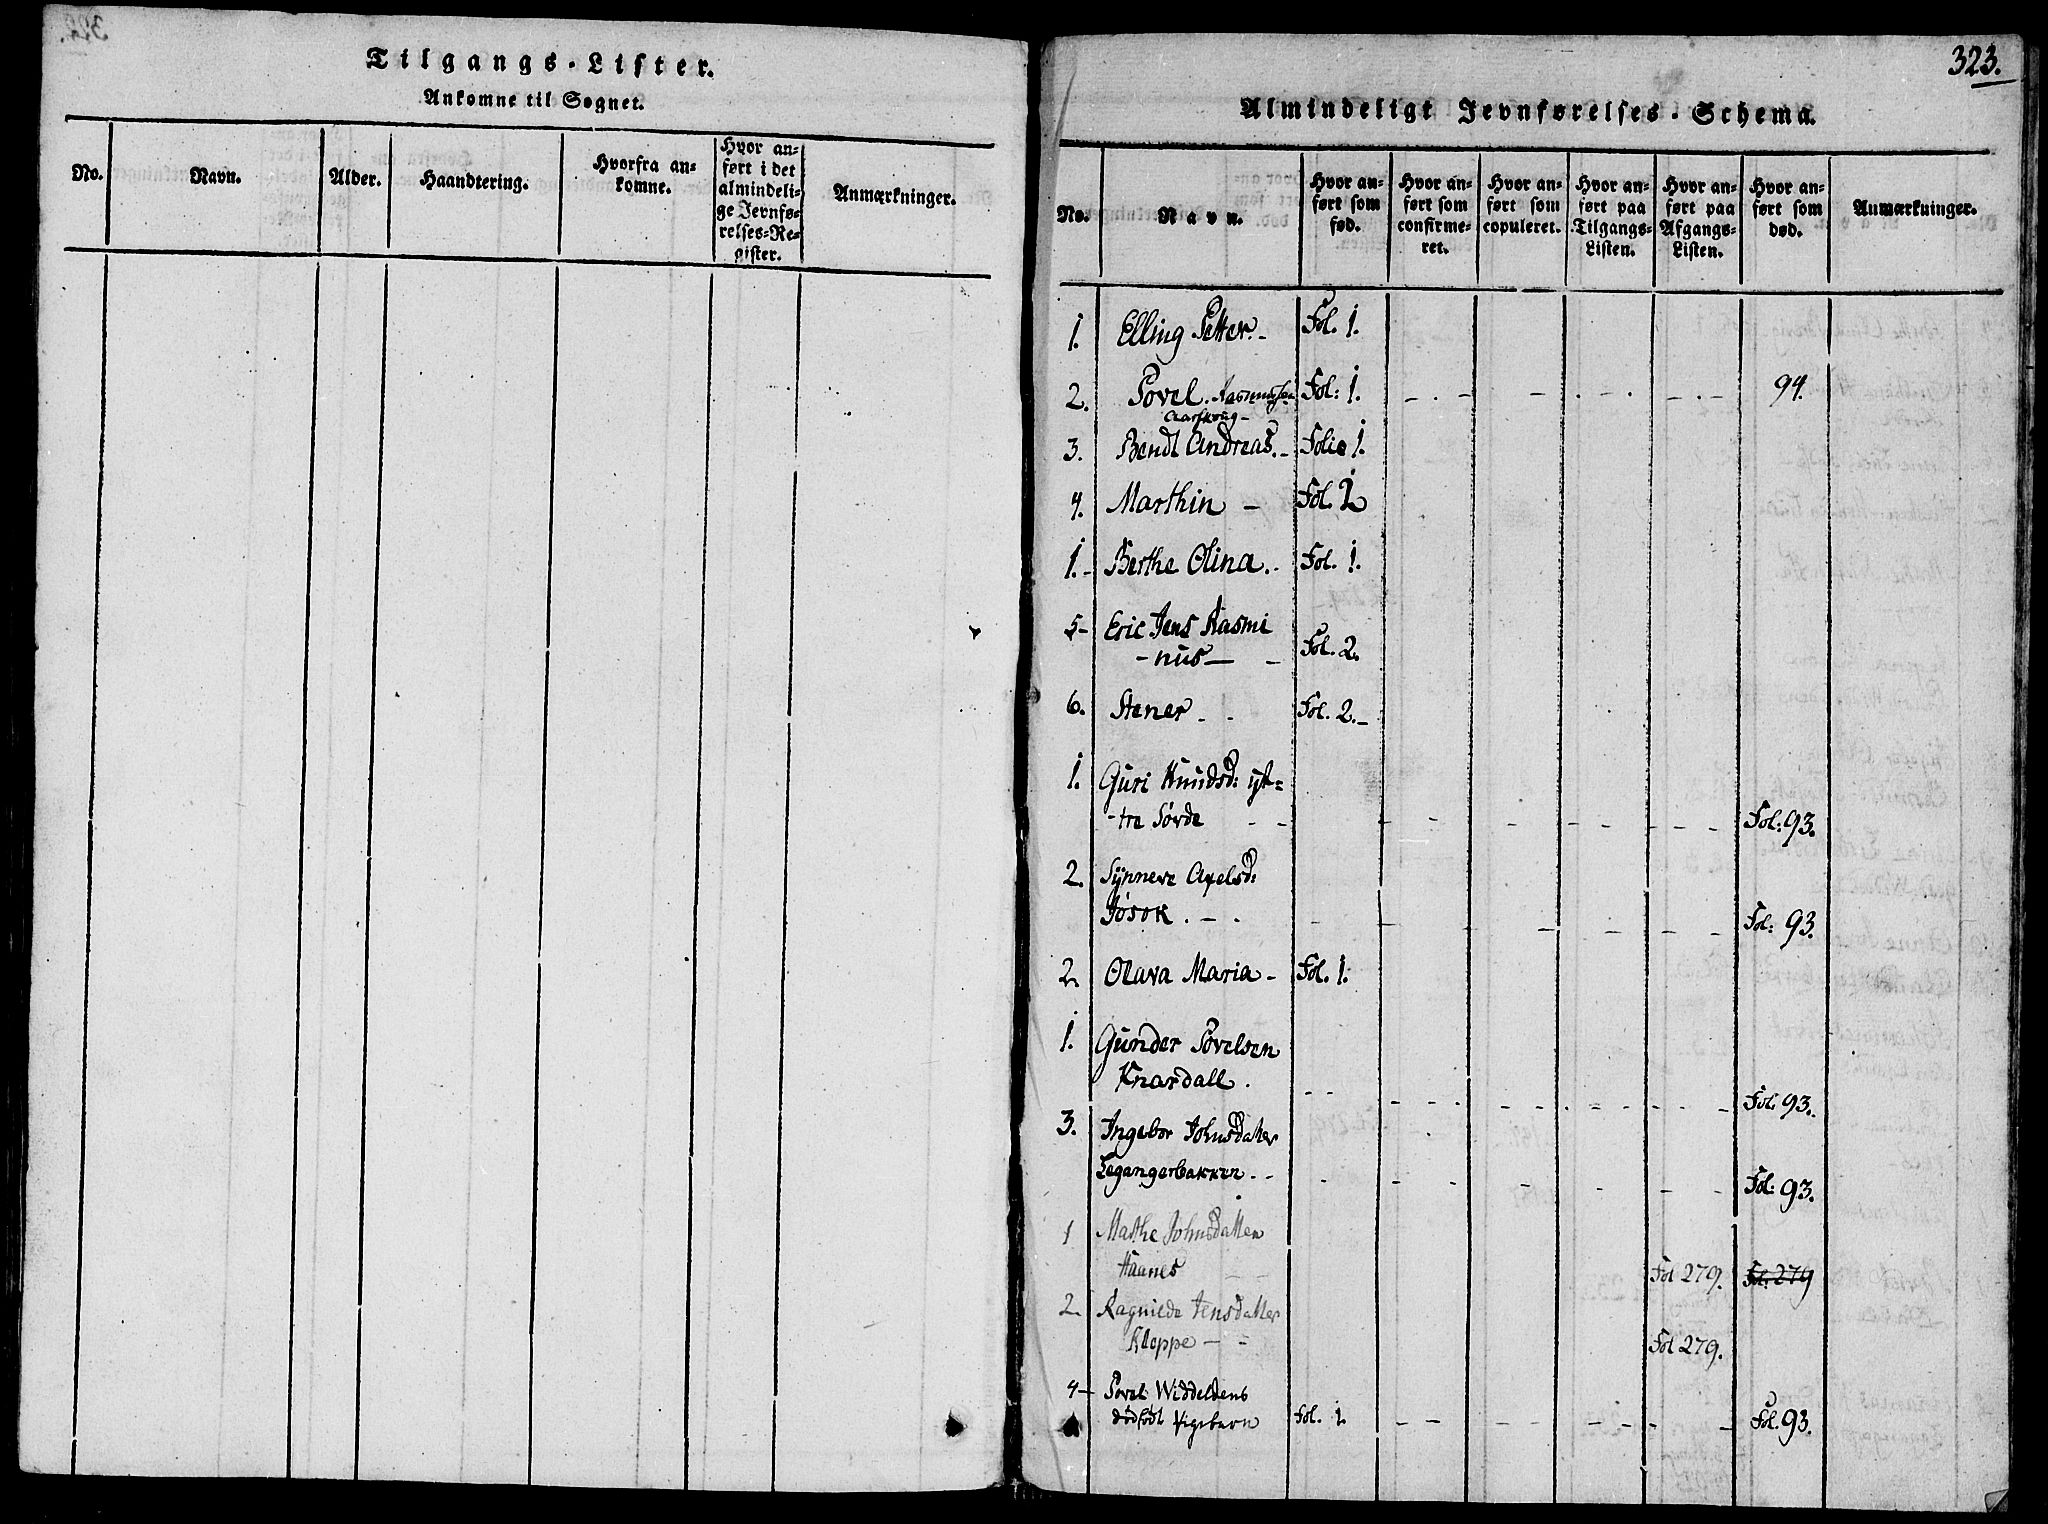 Tilgangs-Lister.
Ankomne til Sognet.
No.
Navn.
Alder.
Haandtering.
Hvorfra an=
komne.
Hvor an=
ført i det
almindeli=
ge Jevnfø=
relses=Re=
gister.
Anmærkninger.
323.
Almindeligt Jevnførelses-Schema.
No.
Navn.
Hvor an=
ført som
fød.
Hvor an=
ført som
confirme=
ret.
Hvor an=
ført som
copuleret.
Hvor an=
ført paa
Tilgangs=
Listen.
Hvor an=
ført paa
Afgangs=
Listen.
Hvor an=
ført som
død.
Anmærkninger.
1. Elling Petter. - Fol. 1.
2. Povel. Rasmussen Fol: 1. 94.
Aarskoug -
3. Bendt Andreas. - Folio 1.
4. Marthin - Fol. 1
1. - Berthe Olina. - Fol. 1.
5 - Eric Jens Rasmi
- nus - Fol. 2.
6. Stener - - Fol. 2. -
1. Guri Knudsd: yt=
- tre Sørde - - Fol: 93.
2. Synneve Axelsd:
Jösok. - - Fol: 93.
2. Olava Maria - Fol. 1.
1. Gunder Povelsen
Knardall. Fol. 93.
3. Ingebor Johnsdatter
Legangerbakken. - - Fol: 93.
1 Mathe Johnsdatter
Haanes Fol 279. Fol: 279
2. Ragnilde Jensdatter
Kloppe - - Fol 279.
4 - Povel Widdeldens
dødfødt Pigebarn Fol. 1. Fol. 93.